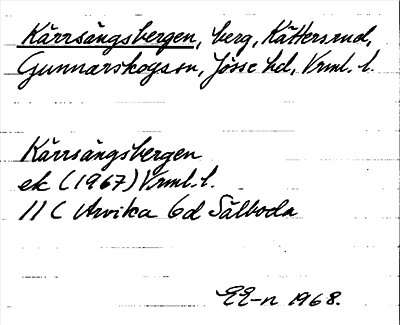 Kärrsängsbergen, berg, Kättersrud,
Gunnarskogs sn, Jösse hd, Vrml. l.
Kärrsängsbergen
ek (1967) Vrml. l.
11 C Arvika 6d Sälboda
EE-n 1968.